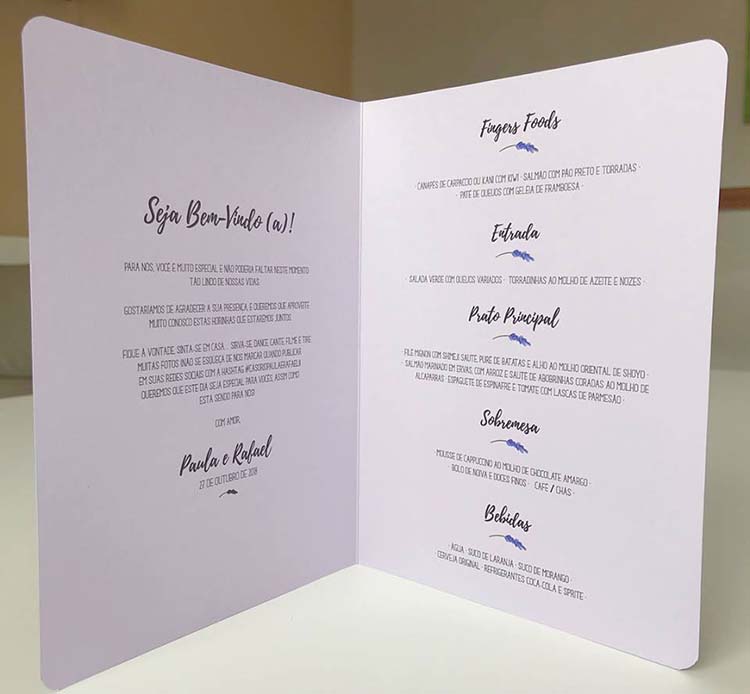 Seja Bem-Vindo (a)!
PARA NÓS, VOCÊ É MUITO ESPECIAL E NÃO PODERIA FALTAR NESTE MOMENTO
TÃO LINDO DE NOSSAS VIDAS.
GOSTARÍAMOS DE AGRADECER A SUA PRESENÇA, E QUEREMOS QUE APROVEITE
MUITO CONOSCO ESTAS HORINHAS QUE ESTAREMOS JUNTOS.
FIQUE À VONTADE, SINTA-SE EM CASA... SIRVA-SE, DANCE, CANTE, FILME E TIRE
MUITAS FOTOS (NÃO SE ESQUEÇA DE NOS MARCAR QUANDO PUBLICAR
EM SUAS REDES SOCIAIS COM A HASHTAG #CASORIOPAULAERAFAELA
QUEREMOS QUE ESTE DIA SEJA ESPECIAL PARA VOCÊS, ASSIM COMO
ESTÁ SENDO PARA NÓS!
COM AMOR,
Paula e Rafael
27 DE OUTUBRO DE 2018
Fingers Foods
CANAPÉS DE CARPACCIO OU KANI COM KIWI · SALMÃO COM PÃO PRETO E TORRADAS ·
· PATÊ DE QUEIJOS COM GELEIA DE FRAMBOESA ·
Entrada
· SALADA VERDE COM QUEIJOS VARIADOS · TORRADINHAS AO MOLHO DE AZEITE E NOZES ·
Prato Principal
FILÉ MIGNON COM SHIMEJI SAUTÉ, PURÊ DE BATATAS E ALHO AO MOLHO ORIENTAL DE SHOYO ·
· SALMÃO MARINADO EM ERVAS, COM ARROZ E SAUTÉ DE ABOBRINHAS CORADAS AO MOLHO DE
ALCAPARRAS · ESPAGUETE DE ESPINAFRE E TOMATE COM LASCAS DE PARMESÃO ·
Sobremesa
MOUSSE DE CAPPUCCINO AO MOLHO DE CHOCOLATE AMARGO ·
· BOLO DE NOIVA E DOCES FINOS · CAFÉ / CHÁS ·
Bebidas
· ÁGUA · SUCO DE LARANJA · SUCO DE MORANGO ·
· CERVEJA ORIGINAL · REFRIGERANTES COCA-COLA E SPRITE ·